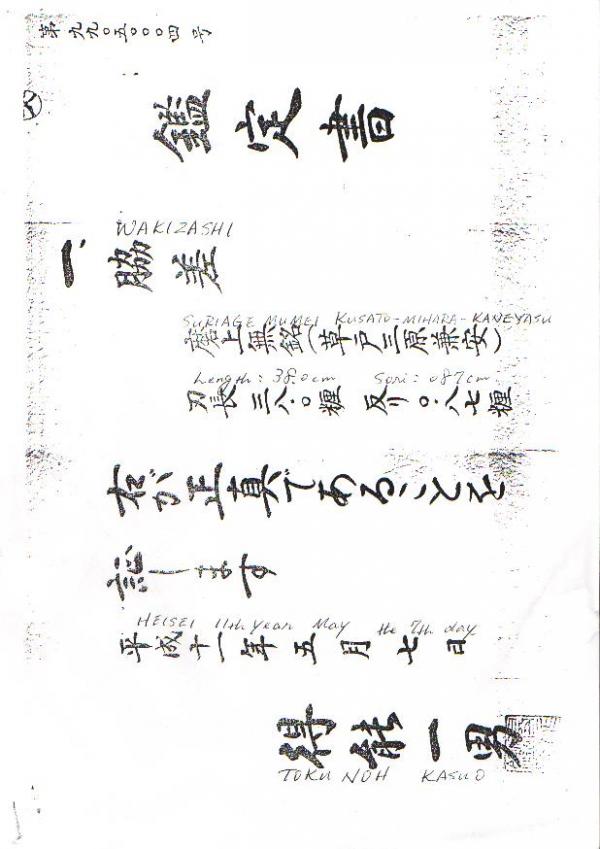 第九九〇五〇〇〇四号
鑑定書
WAKIZASHI
一、脇差
SURIAGE MUMEI KUSATO-MIHARA-KANEYASU
磨上無銘(草戸三原兼安)
Length: 38.0cm Sori: 0.87cm
刃長 三八・〇糎 反リ〇・八七糎
右が正真であることを
証します
HEISEI 11th Year May the 7th day
平成十一年五月七日
得能一男
TOKU NOH KASUO